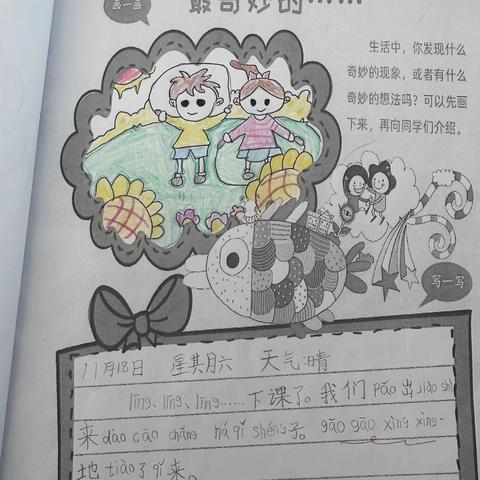 画一画
最奇妙的……
生活中，你发现什么
奇妙的现象，或者有什么
奇妙的想法吗？可以先画
下来，再向同学们介绍。
写一写
11月18日 星其月六 天气:晴
līng、līng、līng……下课了。我们 pǎo 出 jiào shì
来 dào cāo chǎng ná qǐ shéng子。gāo gāo xìng xìng
地 tiào了 qǐ 来。